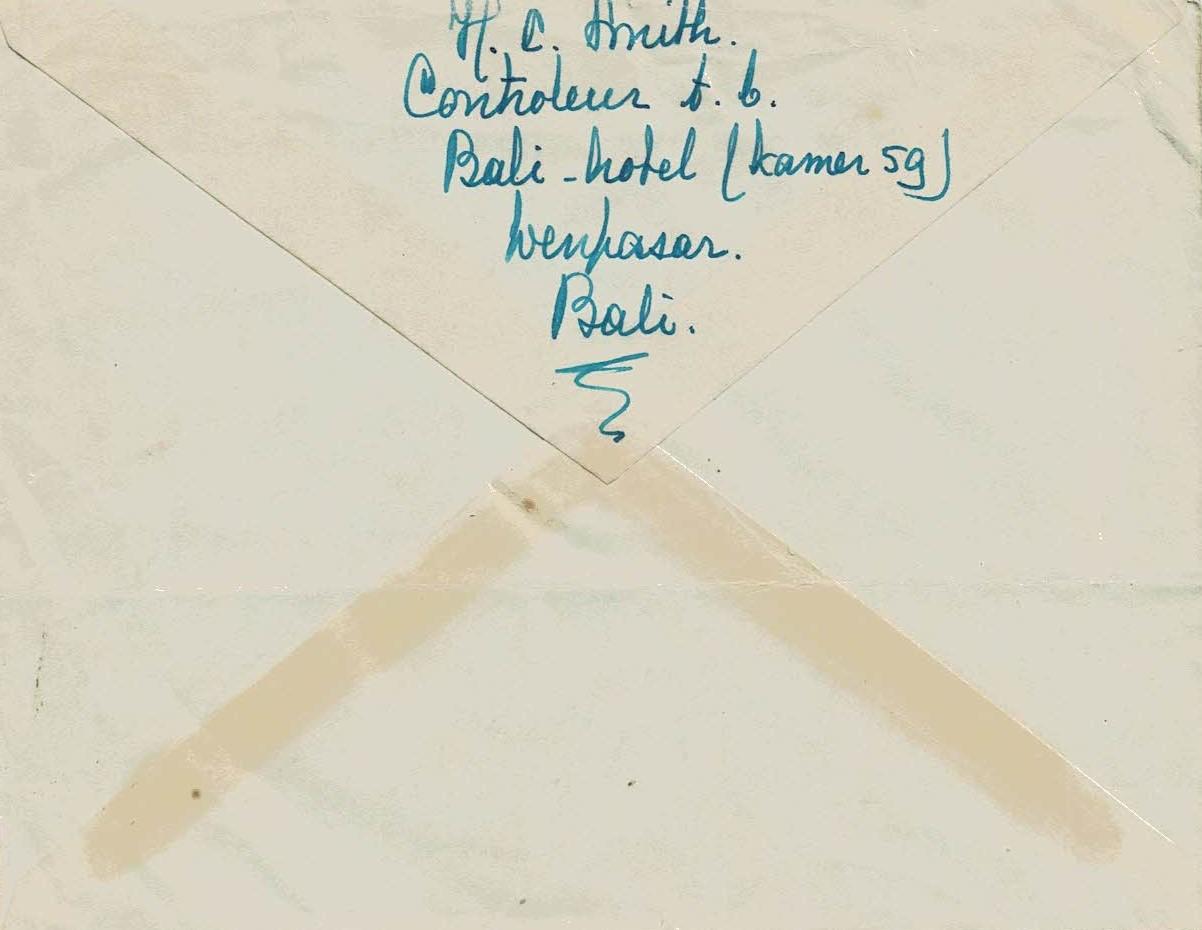 H. C. Smith.
Controleur t. b.
Bali-hotel (kamer 59)
Denpasar.
Bali.